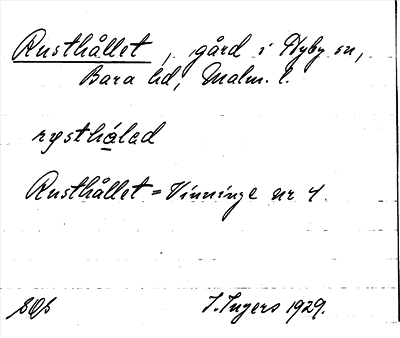 Rusthållet, gård i Hyby sn,
Bara hd, Malm. l.
rysthålad
Rusthållet = Vinninge nr 4.
I. Ingers 1929.